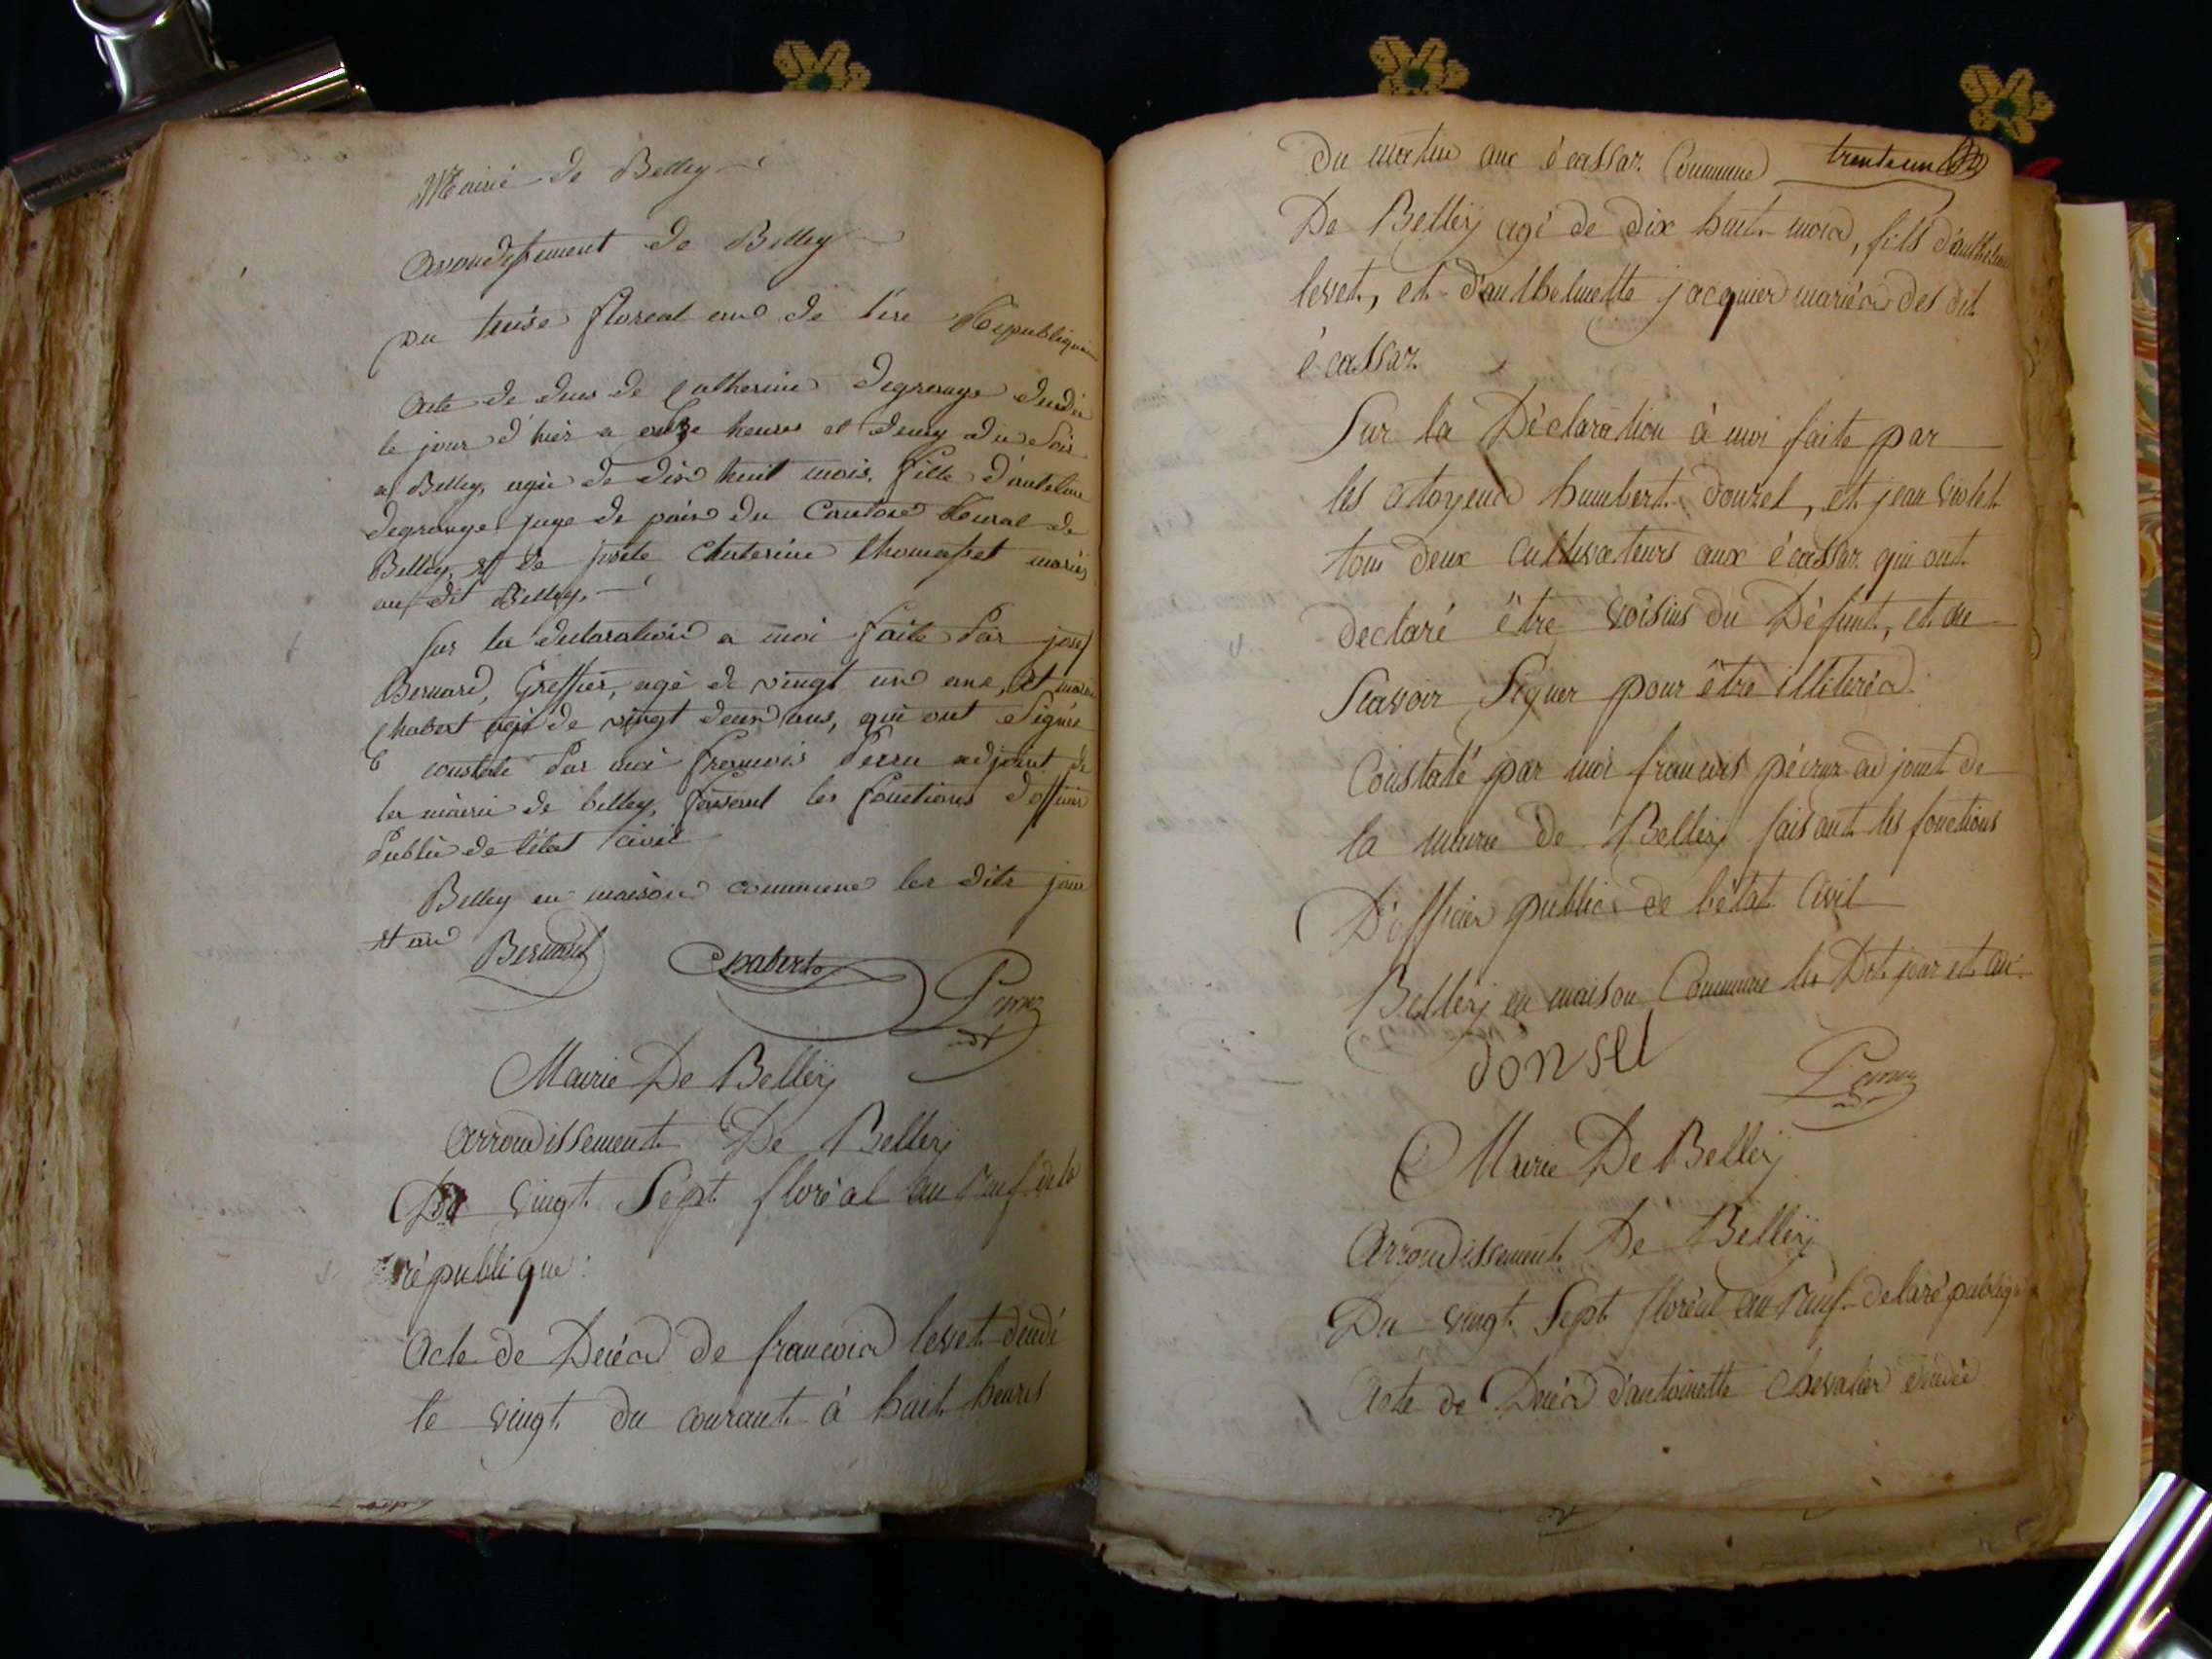 Mairie de Belley
arrondissement de Belley
Du treise floreal an de l'ère Republiquaine
Acte de deces de Catherine degrange décédée
le jour d'hier a onze heures et demy du Soir
a Belley, agée de dix huit mois, fille d'antelme
degrange juge de paix du Canton Rural de
Belley, et de Catherine thomasset mariés
au dit Belley,
Sur la declaration a moi faite Par josef
Bernard, Greffier, agé de vingt un ans, et
Chabert agé de vingt deux ans, qui ont Signés
constaté Par moi francois Perru adjoint de
la mairie de belley, faisant les fonctions d'officier
Public de l'état civil
Belley en maison commune les dits jour
et an
Bernard Chabert
Mairie De Belleÿ
Arrondissement De Belleÿ
Du vingt Sept floréal an neuf de la
république
Acte de Decéd de francois levet décédé
le vingt du courant à huit heures
trenteun
Du matin aux écassaz Commune
De Belleÿ agé de dix huit mois, fils d'anthelme
levet, et d'anthelmette jacquier mariés des dit
écassaz
Sur la Déclaration à moi faite par
les citoyens humbert donzel, et jean violet
tous deux cultivateurs aux écassaz qui ont
declaré être voisins du Défunt, et de
Scavoir Signer pour être illiterés
Constaté par moi francois adjoint de
la mairie de Belleÿ faisant les fonctions
D'officier public de l'état Civil
Belleÿ en maison Commune les Dit jour et an
donsel
Mairie De Belleÿ
Arrondissement De Belleÿ
Du vingt Sept floréal an neuf de la républiq
Acte de Decéd d'antoinette Chevalier décédée